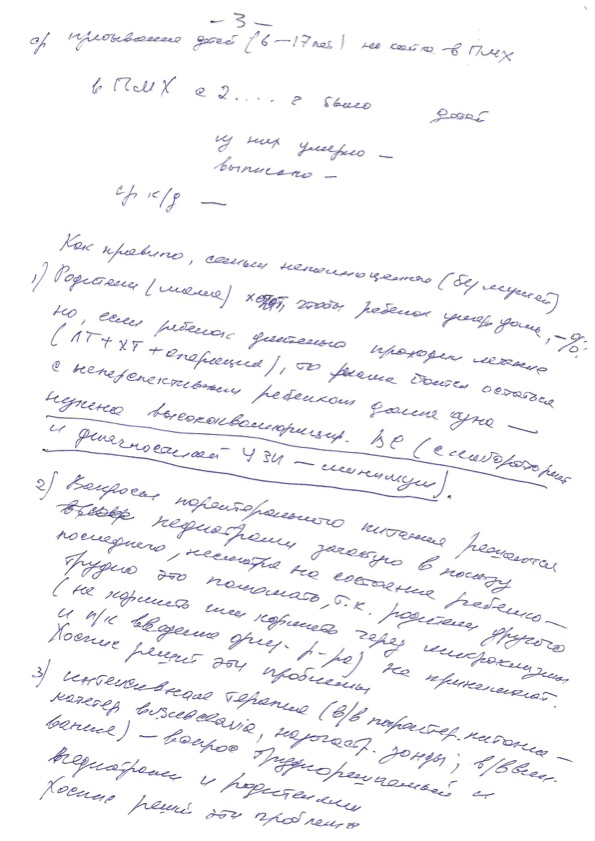 - 3 -
ср пребывание детей (6 – 17 лет) на койке в ПМХ
в ПМХ с 2.... г было детей
из них умерло –
выписано –
ср к/д —
Как правило, семьи неполноценные (без мужей)
1) Родители (мама) хотят, чтобы ребенок умер дома, – %;
но, если ребенок длительно проходил лечение
(ЛТ + ХТ + операция), то мама боится остаться
с неперспективным ребенком дома одна —
нужна высококвалифицир. ВС (с лабораторной
и диагностикой УЗИ – минимум).
2) Вопросы парентерального питания решаются
педиатрами зачастую в пользу
последнего, несмотря на состояние ребенка –
трудно это поломать, т.к. родители другого
(не кормить или кормить через микроклизмы
и п/к введение физ. р-ра) не принимают.
Хоспис решит эти проблемы
3) интенсивная терапия (в/в парэнтер. питание –
катетер в subclavia, назогастр. зонды; в/в вли-
вание) – вопрос трудорешаемый и
педиатрами и родителями
Хоспис решит эти проблемы